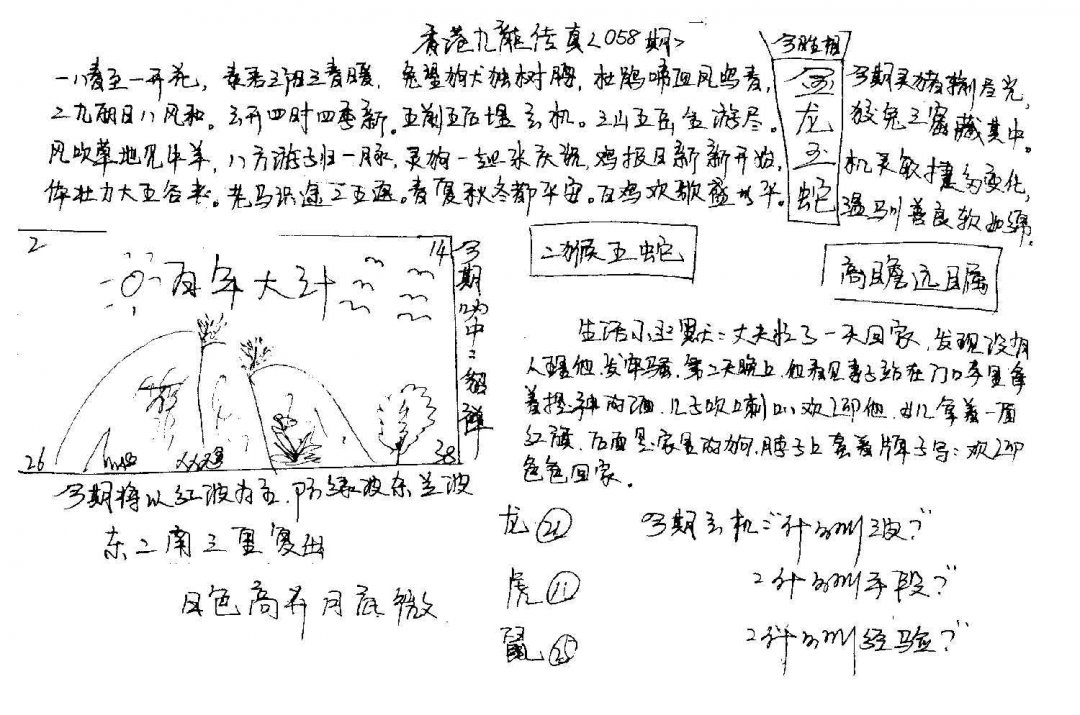 香港九龍传真<058期>
一八春至一开花，春君三阳三春暖，兔望狗犬独树膀，杜鹃啼血凤鸣春，
二九朝日八风和。云开四时四季新。五前五后堪玄机。三山五岳金游尽。
风吹草地见牛羊，八方游子归一脉，灵狗一起张庆祝，鸡报日新新开始，
体壮力大五谷来。老马识途三五遍。春夏秋冬都平安。百鸡欢歌盛太平。
今期
金龙玉蛇
今期灵猪剩尽光，
狡兔三窟藏其中。
机灵敏捷多变化，
温驯善良软如绵。
二猴五蛇
高瞻远瞩
2
14
百年大计
26
38
今期
生活小幽默：丈夫忙了一天回家，发现没有
人理他，发牢骚，第二天晚上，他看见妻子站在门口手里拿
着提神的酒，儿子吹喇叭欢迎他，女儿拿着一面
红旗，后面是家里的狗，脖子上套着牌子写：欢迎
爸爸回家。
今期将以红波为主，防绿波东兰波
东二南三里复出
日色高升月底微
龙㉑
虎⑪
鼠㉕
今期玄机："什么叫波?"
"什么叫手段?"
"什么叫经验?"